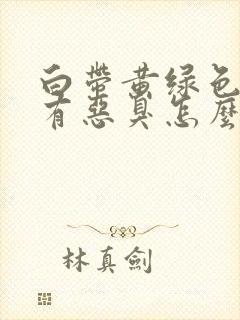 白带黄绿色
有恶臭怎麼
林真劍